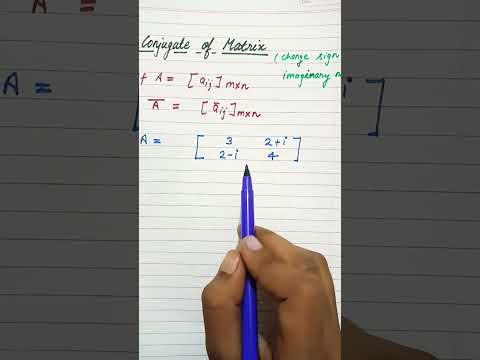 Conjugate of Matrix
( change sign
imaginary n
f A = [aij]m×n
A̅ = [a̅ij]m×n
A = [ 3 2+i
2-i 4 ]
A =